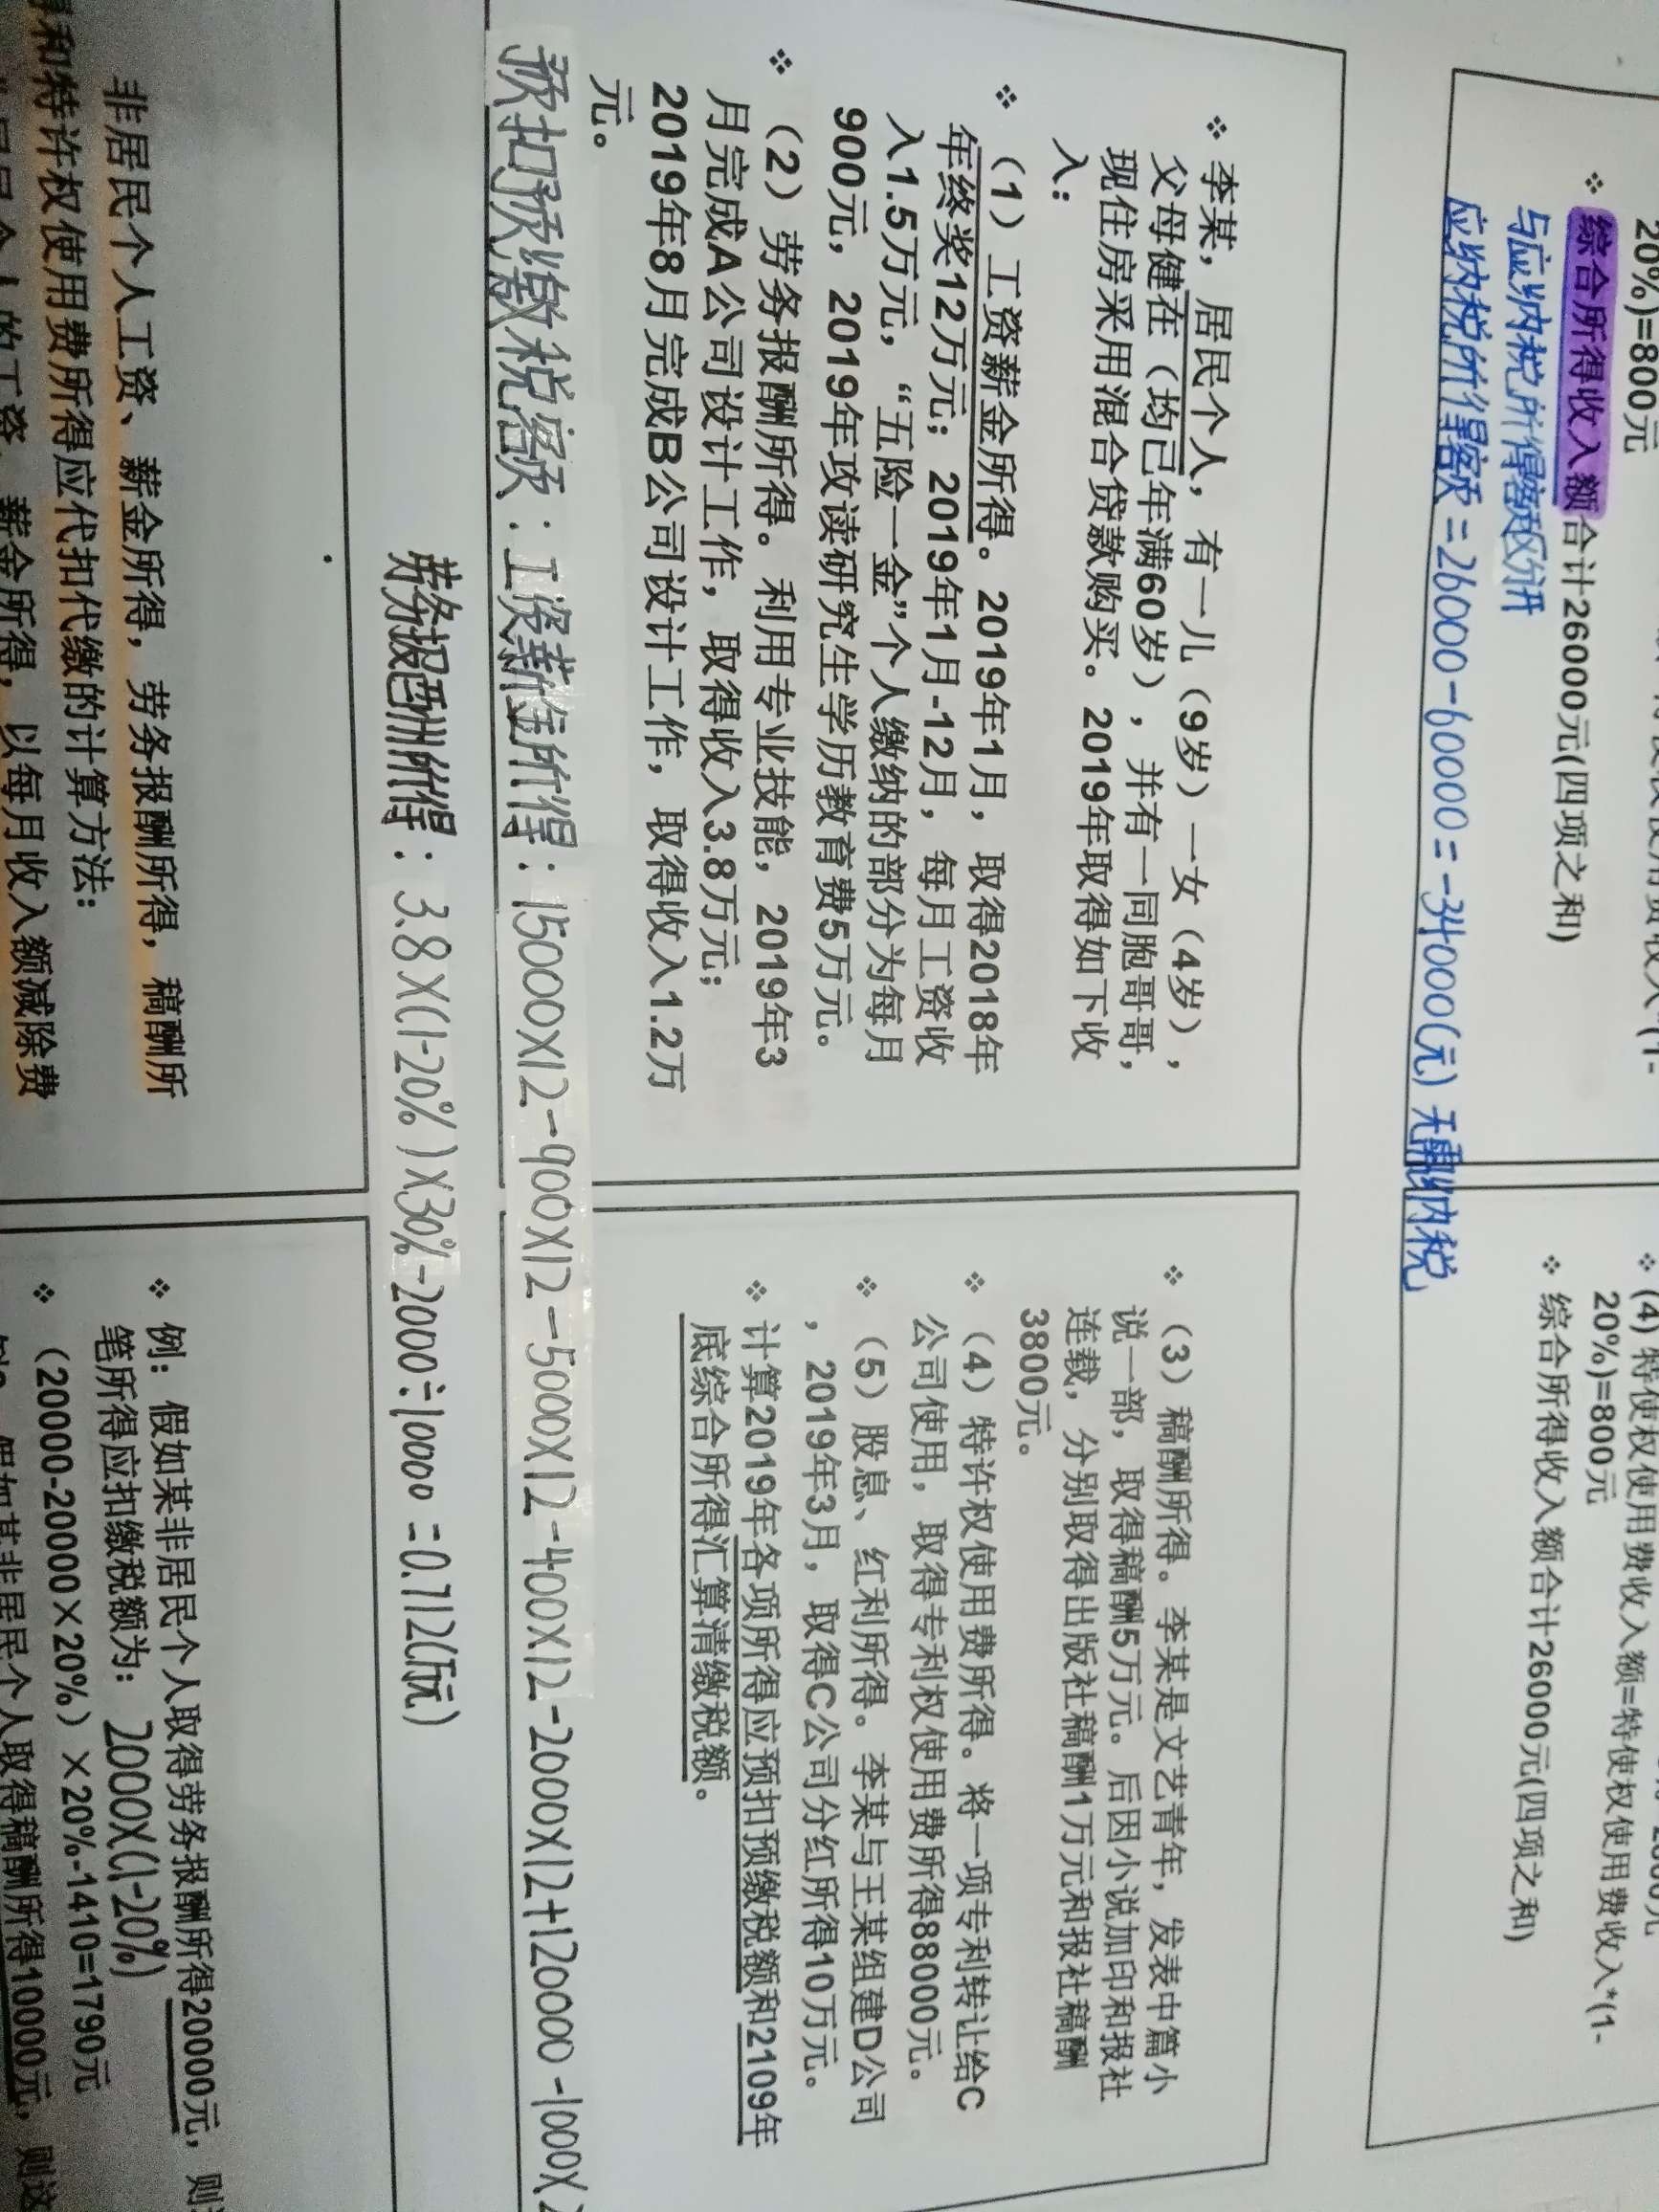 20%)=800元
综合所得收入额合计26000元(四项之和)
与应纳税所得额区分开
应纳税所得额=26000-60000=-34000(元) 无需纳税
(4) 特使权使用费收入额=特使权使用费收入*(1-
20%)=800元
综合所得收入额合计26000元(四项之和)
李某，居民个人，有一儿（9岁）一女（4岁），
父母健在（均已年满60岁），并有一同胞哥哥，
现住房采用混合贷款购买。2019年取得如下收
入：
（1）工资薪金所得。2019年1月，取得2018年
年终奖12万元；2019年1月-12月，每月工资收
入1.5万元，“五险一金”个人缴纳的部分为每月
900元，2019年攻读研究生学历教育费5万元。
（2）劳务报酬所得。利用专业技能，2019年3
月完成A公司设计工作，取得收入3.8万元；
2019年8月完成B公司设计工作，取得收入1.2万
元。
（3）稿酬所得。李某是文艺青年，发表中篇小
说一部，取得稿酬5万元。后因小说加印和报社
连载，分别取得出版社稿酬1万元和报社稿酬
3800元。
（4）特许权使用费所得。将一项专利转让给C
公司使用，取得专利权使用费所得88000元。
（5）股息、红利所得。李某与王某组建D公司
，2019年3月，取得C公司分红所得10万元。
计算2019年各项所得应预扣预缴税额和2109年
底综合所得汇算清缴税额。
预扣预缴税额：工资薪金所得：15000×12-900×12-5000×12-400×12-2000×12+120000-1000×
劳务报酬所得：3.8×(1-20%)×30%-2000÷10000=0.712(万元)
非居民个人工资、薪金所得，劳务报酬所得，稿酬所
和特许权使用费所得应代扣代缴的计算方法：
的工资、薪金所得，以每月收入额减除费
例：假如某非居民个人取得劳务报酬所得20000元，则
笔所得应扣缴税额为： 20000×(1-20%)
（20000-20000×20%）×20%-1410=1790元
假如某非居民个人取得稿酬所得10000元，则这